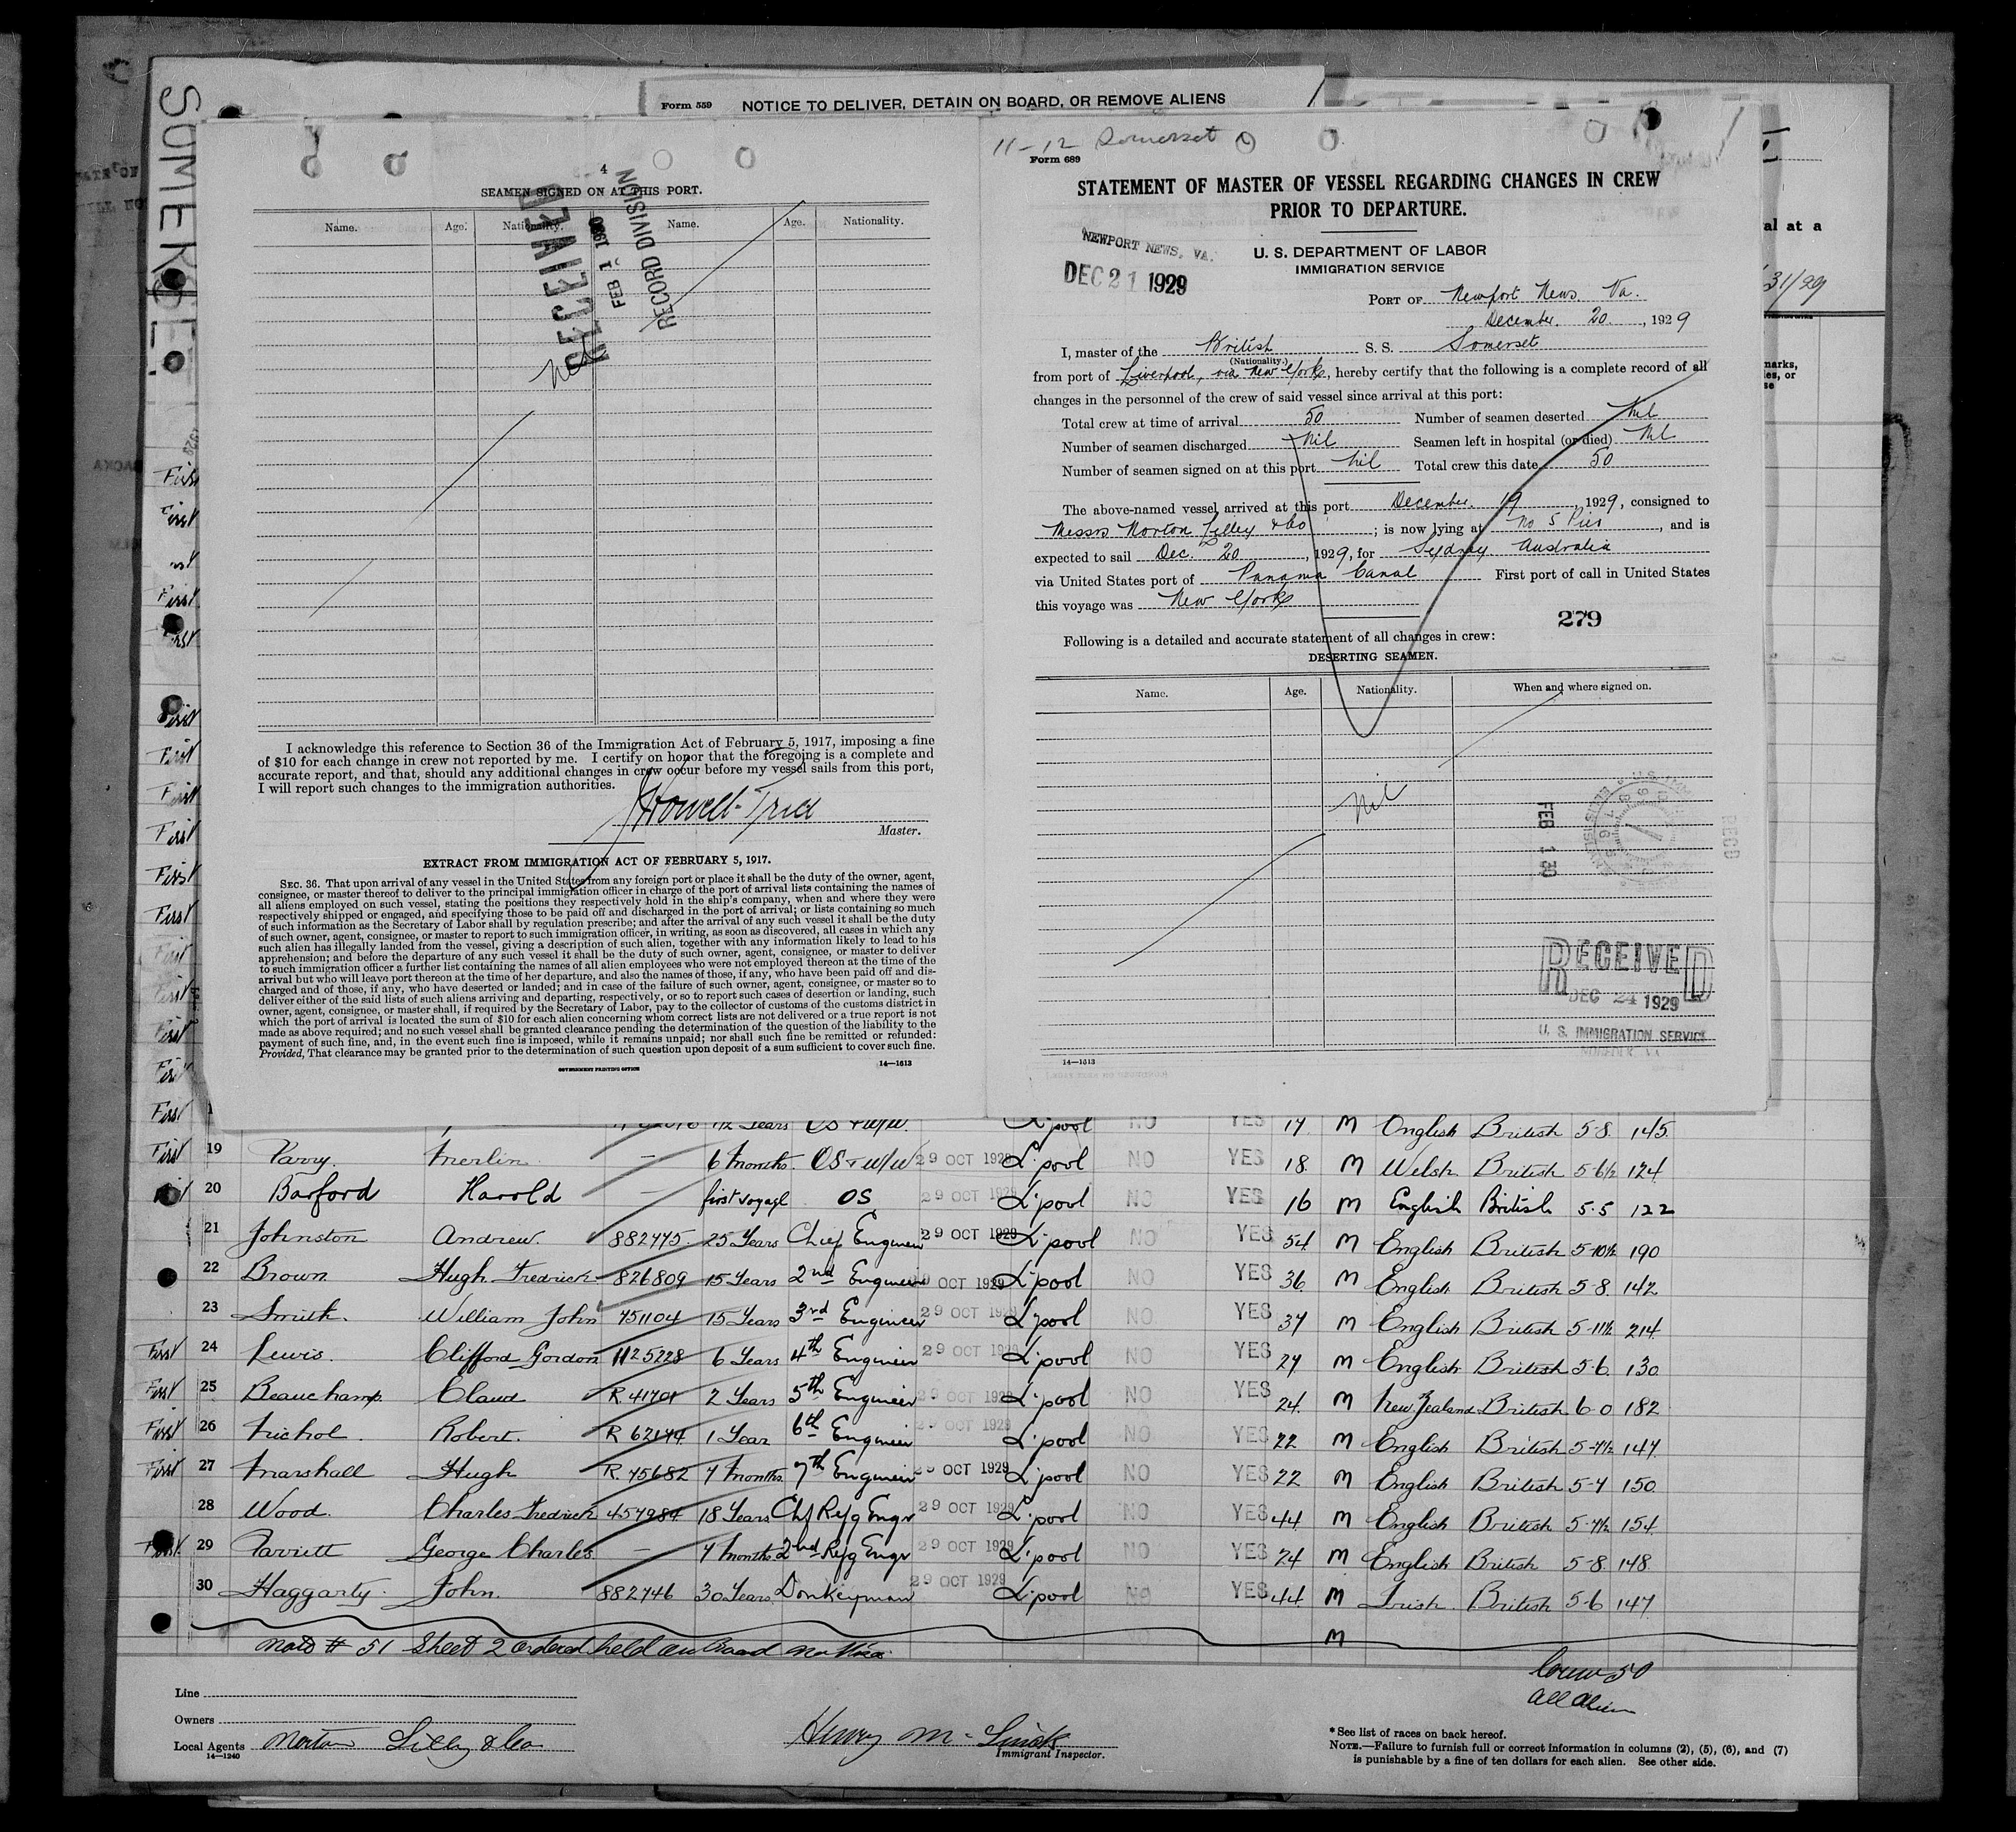 SOMERSET.
Form 559 NOTICE TO DELIVER, DETAIN ON BOARD, OR REMOVE ALIENS
4
SEAMEN SIGNED ON AT THIS PORT.
Name. Age. Nationality. Name. Age. Nationality.
RECEIVED
FEB 1 1930
RECORD DIVISION
Nil
I acknowledge this reference to Section 36 of the Immigration Act of February 5, 1917, imposing a fine
of $10 for each change in crew not reported by me. I certify on honor that the foregoing is a complete and
accurate report, and that, should any additional changes in crew occur before my vessel sails from this port,
I will report such changes to the immigration authorities.
Master.
EXTRACT FROM IMMIGRATION ACT OF FEBRUARY 5, 1917.
SEC. 36. That upon arrival of any vessel in the United States from any foreign port or place it shall be the duty of the owner, agent,
consignee, or master thereof to deliver to the principal immigration officer in charge of the port of arrival lists containing the names of
all aliens employed on such vessel, stating the positions they respectively hold in the ship's company, when and where they were
respectively shipped or engaged, and specifying those to be paid off and discharged in the port of arrival; or lists containing so much
of such information as the Secretary of Labor shall by regulation prescribe; and after the arrival of any such vessel it shall be the duty
of such owner, agent, consignee, or master to report to such immigration officer, in writing, as soon as discovered, all cases in which any
such alien has illegally landed from the vessel, giving a description of such alien, together with any information likely to lead to his
apprehension; and before the departure of any such vessel it shall be the duty of such owner, agent, consignee, or master to deliver
to such immigration officer a further list containing the names of all alien employees who were not employed thereon at the time of the
arrival but who will leave port thereon at the time of her departure, and also the names of those, if any, who have been paid off and dis-
charged and of those, if any, who have deserted or landed; and in case of the failure of such owner, agent, consignee, or master so to
deliver either of the said lists of such aliens arriving and departing, respectively, or so to report such cases of desertion or landing, such
owner, agent, consignee, or master shall, if required by the Secretary of Labor, pay to the collector of customs of the customs district in
which the port of arrival is located the sum of $10 for each alien concerning whom correct lists are not delivered or a true report is not
made as above required; and no such vessel shall be granted clearance pending the determination of the question of the liability to the
payment of such fine, and, in the event such fine is imposed, while it remains unpaid; nor shall such fine be remitted or refunded:
Provided, That clearance may be granted prior to the determination of such question upon deposit of a sum sufficient to cover such fine.
GOVERNMENT PRINTING OFFICE 14—1613
11-12 Somerset
Form 689
STATEMENT OF MASTER OF VESSEL REGARDING CHANGES IN CREW
PRIOR TO DEPARTURE.
NEWPORT NEWS, VA.
DEC 21 1929
U. S. DEPARTMENT OF LABOR
IMMIGRATION SERVICE
PORT OF Newport News Va.
December 20, 1929
I, master of the British S. S. Somerset
(Nationality.)
from port of Liverpool, via New York, hereby certify that the following is a complete record of all
changes in the personnel of the crew of said vessel since arrival at this port:
Total crew at time of arrival 50 Number of seamen deserted Nil
Number of seamen discharged Nil Seamen left in hospital (or died) Nil
Number of seamen signed on at this port Nil Total crew this date 50
The above-named vessel arrived at this port December 19, 1929, consigned to
Messrs Norton Lilley & Co; is now lying at No 5 Pier, and is
expected to sail Dec. 20, 1929, for Sydney Australia
via United States port of Panama Canal First port of call in United States
this voyage was New York
279
Following is a detailed and accurate statement of all changes in crew:
DESERTING SEAMEN.
Name. Age. Nationality. When and where signed on.
Nil
FEB 1 30
RECD
RECEIVED
DEC 24 1929
U. S. IMMIGRATION SERVICE
14—1613
al at a
31/29
marks,
les, or
se
L'pool NO YES 17 M English British 5-8. 145.
First 19 Parry. Merlin — 6 months. OS & W/W 29 OCT 1929 L'pool NO YES 18. M Welsh British 5-6½ 124
20 Barford Harold — first voyage OS 29 OCT 1929 L'pool NO YES 16 M English British 5.5 122
21 Johnston Andrew. 882775 25 Years Chief Engineer 29 OCT 1929 L'pool NO YES 54 M English British 5-10½ 190
22 Brown Hugh Fredrick 826809 15 Years 2nd Engineer 29 OCT 1929 L'pool NO YES 36. M English British 5-8. 142
23 Smith. William John 751104 15 Years 3rd Engineer 29 OCT 1929 L'pool NO YES 37 M English British 5-11½ 214
First 24 Lewis. Clifford Gordon 1125228 6 Years 4th Engineer 29 OCT 1929 L'pool NO YES 27 M English British 5-6. 130
First 25 Beauchamp. Claud R. 41701 2 Years 5th Engineer 29 OCT 1929 L'pool NO YES 24. M New Zealand British 6-0 182
First 26 Nichol. Robert. R 62174 1 Year 6th Engineer 29 OCT 1929 L'pool NO YES 22 M English British 5-7½ 147
First 27 Marshall Hugh R. 75682 7 months. 7th Engineer 29 OCT 1929 L'pool NO YES 22 M English British 5-7 150
28 Wood. Charles Fredrick 457984 18 Years Chf Refg Engr 29 OCT 1929 L'pool NO YES 44 M English British 5-7½ 154
First 29 Parriett George Charles — 7 months 2nd Refg Engr 29 OCT 1929 L'pool NO YES 24 M English British 5-8. 148
30 Haggarty. John. 882746 30 Years Donkeyman 29 OCT 1929 L'pool NO YES 44 M Irish British 5-6 147
M
# 51 Sheet 2 ordered held on board no visa
Crew 50
All Alien
Line
Owners
Local Agents Norton Lilly & Co
14—1240
Immigrant Inspector.
* See list of races on back hereof.
NOTE.—Failure to furnish full or correct information in columns (2), (5), (6), and (7)
is punishable by a fine of ten dollars for each alien. See other side.